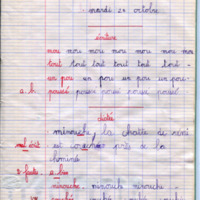 mardi 20 octobre
écriture
mou mou mou mou mou mou mou
tout tout tout tout tout tout
un pou un pou un pou un pou
a.b. poussé poussé poussé poussé
dictée
minouche, la chatte de rémi
mal écrit est couchée près de la
cheminée
2 fautes a. bien
minouche - minouche - minouche -